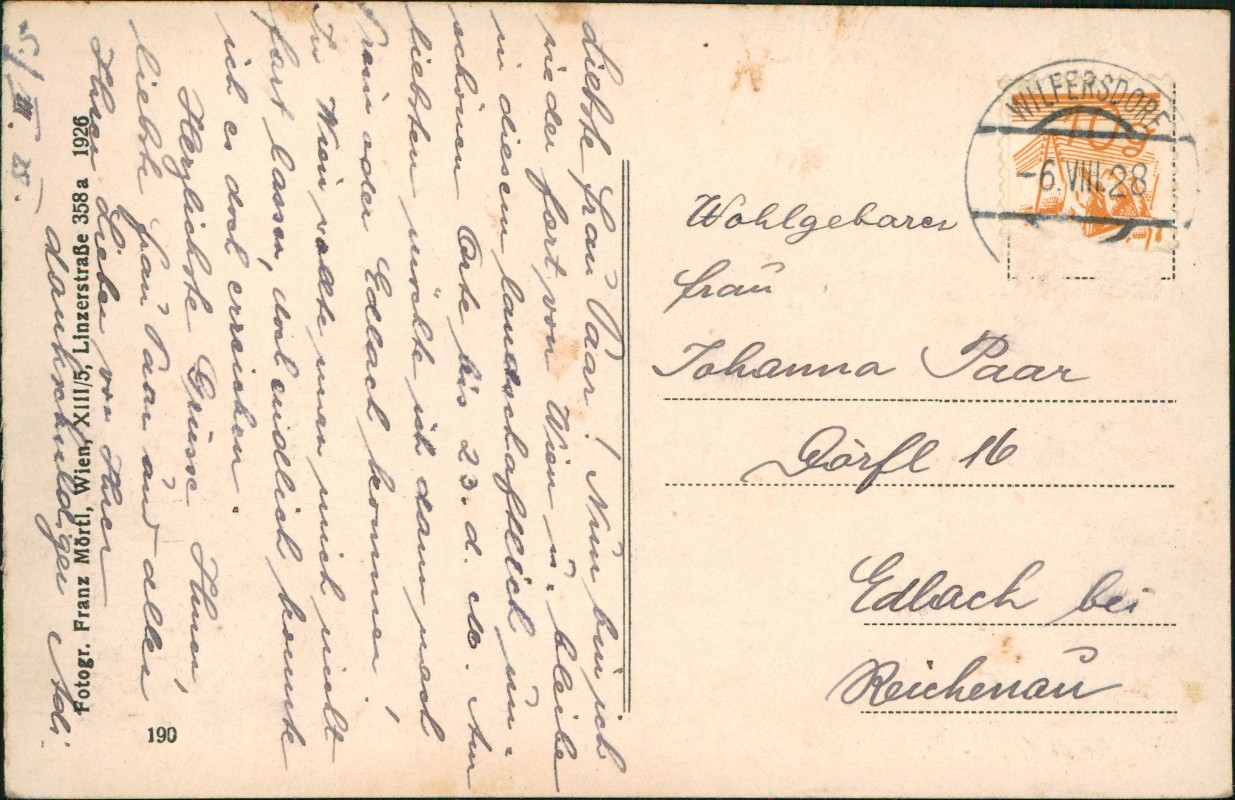 Liebste Frau Paar! Nun bin ich
wieder fort von Wien u. bleibe
in diesem landschaftlich wun-
schönen Orte bis 23. d. M. Am
liebsten möchte ich dann nach
oder Edlach kommen!
In Wien wollte man mich nicht
fort lassen, und endlich konnte
ich es doch erreichen.
Herzlichste Grüsse Ihnen,
liebste Frau Paar und allen
Ihren Lieben von Ihrer
dankschuldigen
5/VIII. 28.
Fotogr. Franz Mörtl, Wien, XIII/5, Linzerstraße 358a 1926
190
WILFERSDORF
-6.VIII.28
10g
Wohlgeboren
Frau
Johanna Paar
Dörfl 16
Edlach bei
Reichenau